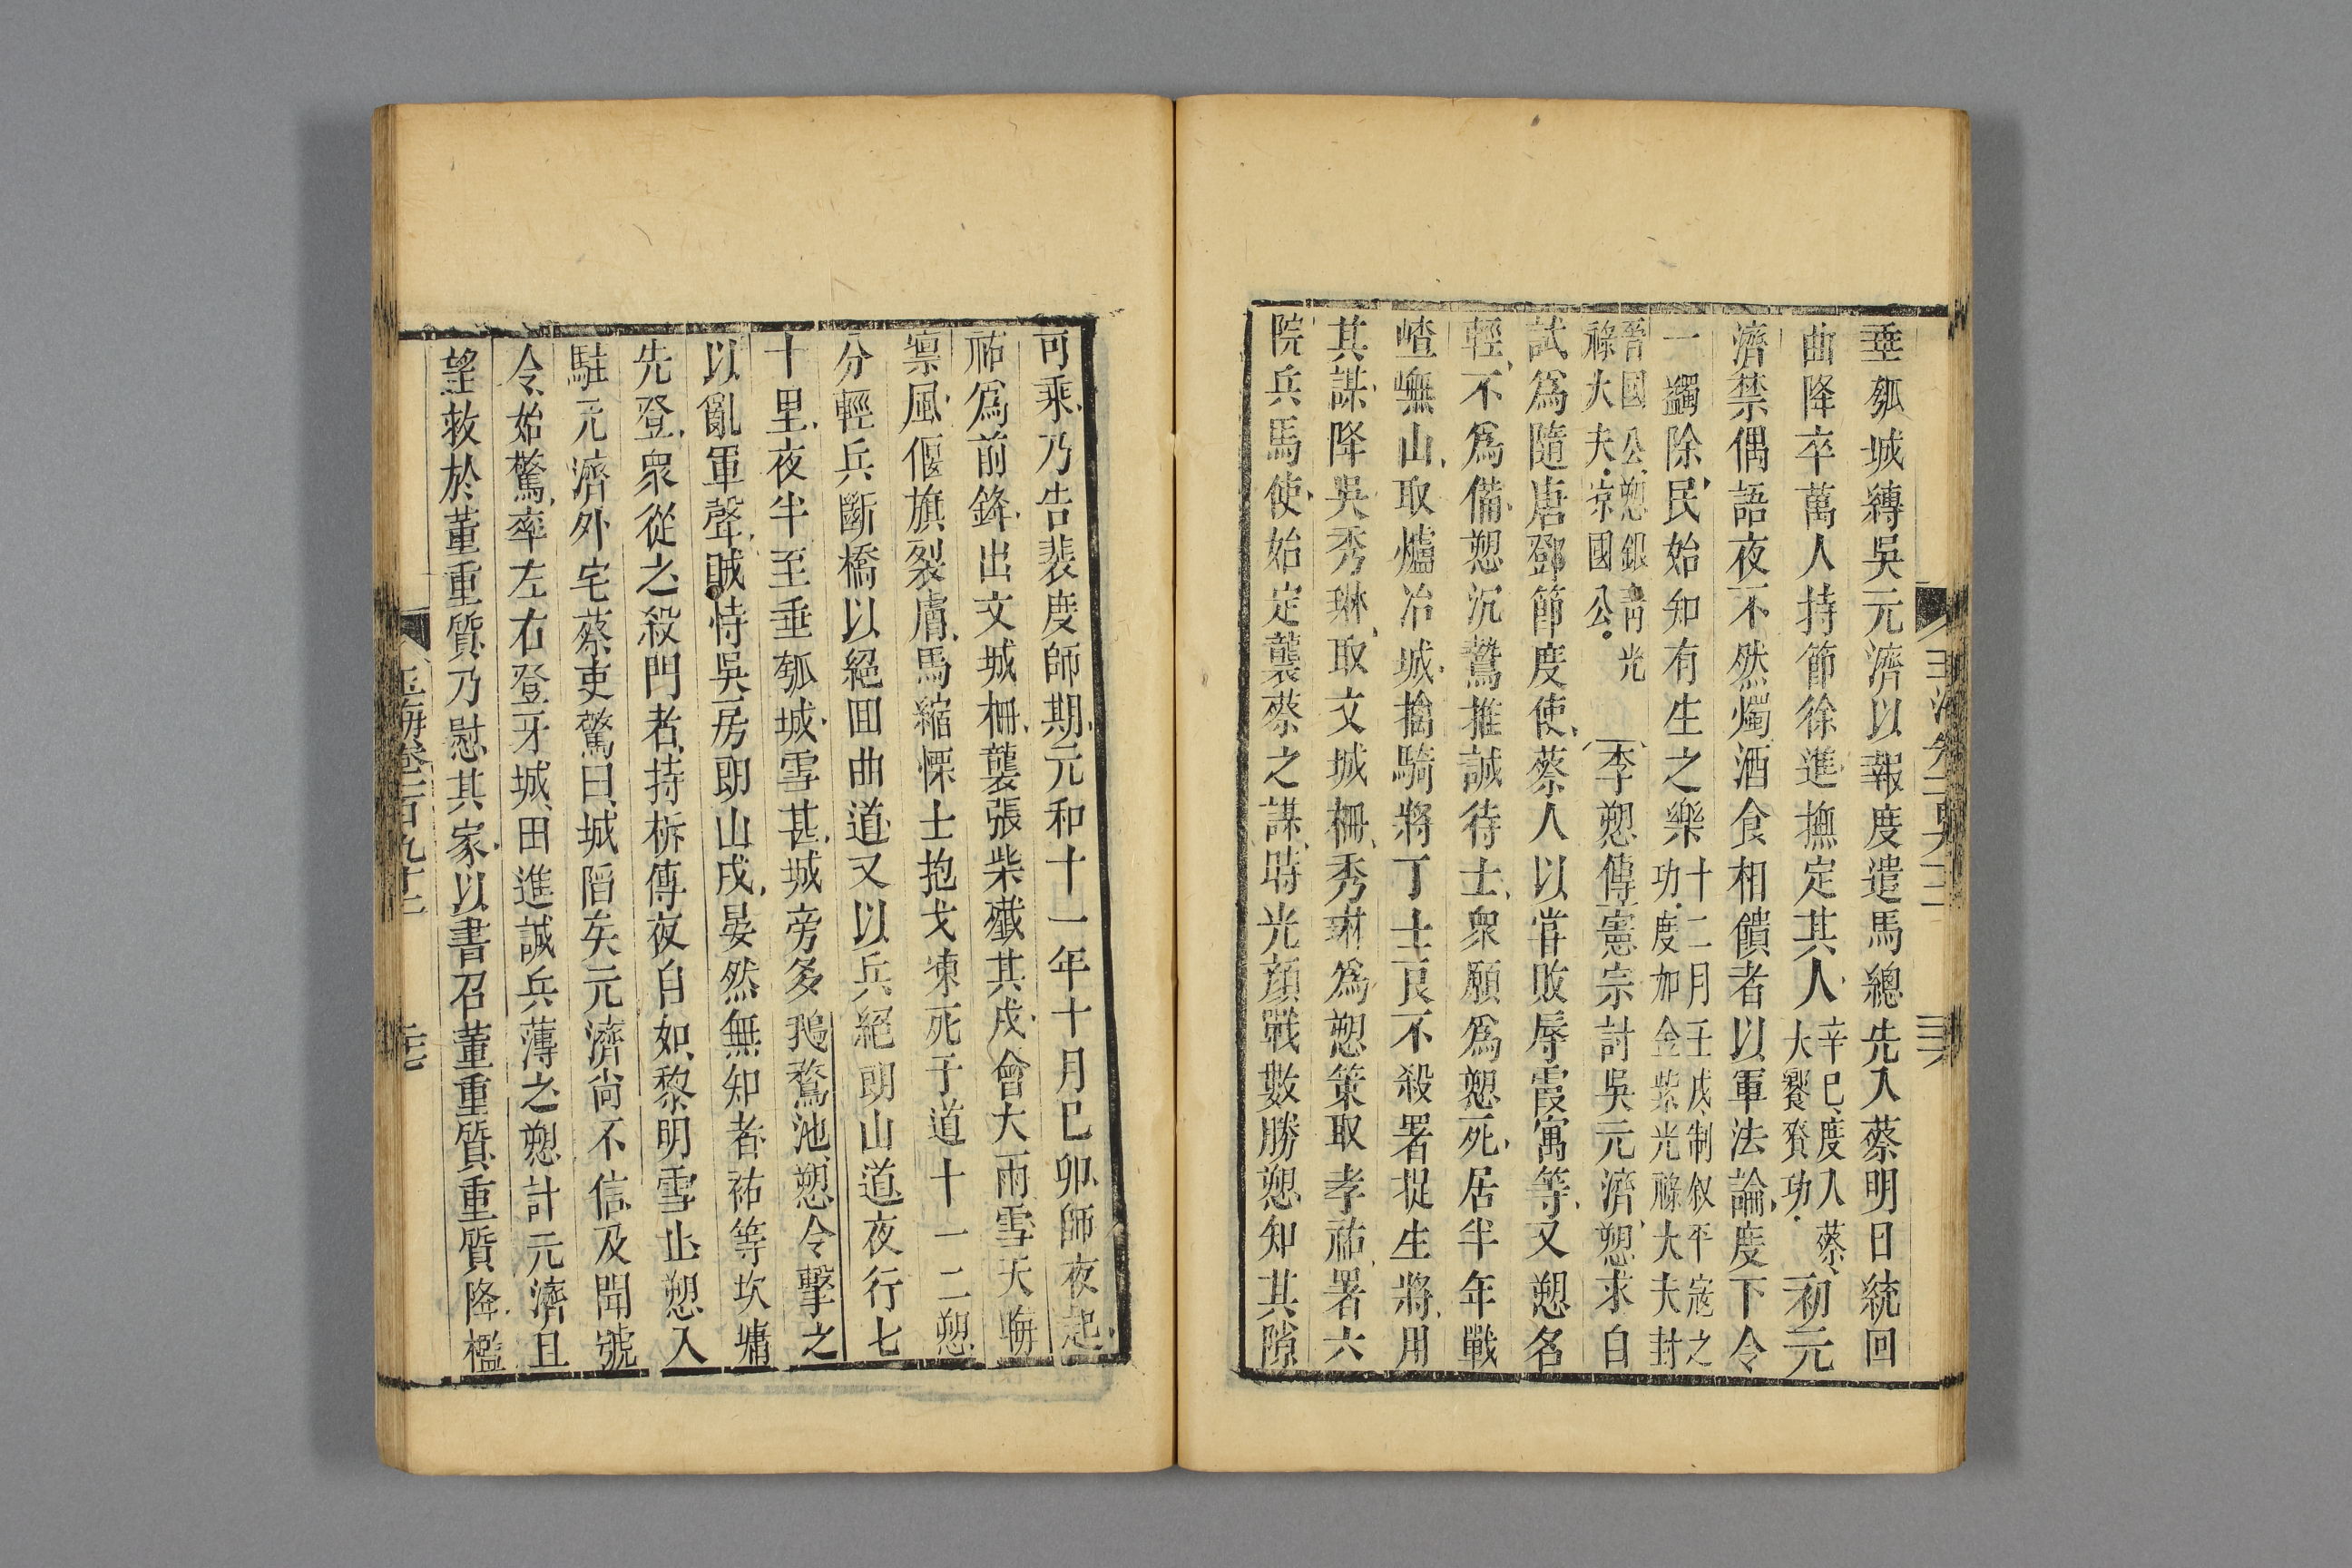 垂瓠城縛吳元濟以報度遣馬總先入蔡明日統回
曲降卒萬人持節徐進撫定其人辛巳度入蔡大饗賚功初元
濟禁偶語夜不然燭酒食相饋者以軍法論度下令
一蠲除民始知有生之樂十二月壬戌制叙平寇之功度加金紫光祿大夫封
晉國公愬銀靑光祿大夫凉國公李愬傳憲宗討吳元濟愬求自
試爲隨唐鄧節度使蔡人以嘗敗辱霞寓等又愬名
輕不爲備愬沉鷙推誠待士衆願爲愬死居半年戰
嵖㠜山取爐冶城擒騎將丁士良不殺署捉生將用
其謀降吳秀琳取文城柵秀琳爲愬策取李祐署六
院兵馬使始定襲蔡之謀時光顔戰數勝愬知其隙
可乘乃告裴度師期元和十一年十月己卯師夜起
祐爲前鋒出文城柵襲張柴殲其戍會大雨雪天晦
凛風偃旗裂膚馬縮慄士抱戈凍死于道十一二愬
分輕兵斷橋以絕回曲道又以兵絕朗山道夜行七
十里夜半至垂瓠城雪甚城旁多鵝鶩池愬令擊之
以亂軍聲賊恃吳房朗山戍晏然無知者祐等坎墉
先登衆從之殺門者持柝傳夜自如黎明雪止愬入
駐元濟外宅蔡吏驚曰城陷矣元濟尙不信及聞號
令始驚率左右登牙城田進誠兵薄之愬計元濟且
望救於董重質乃慰其家以書召董重質重質降檻
玉海卷一百九十二